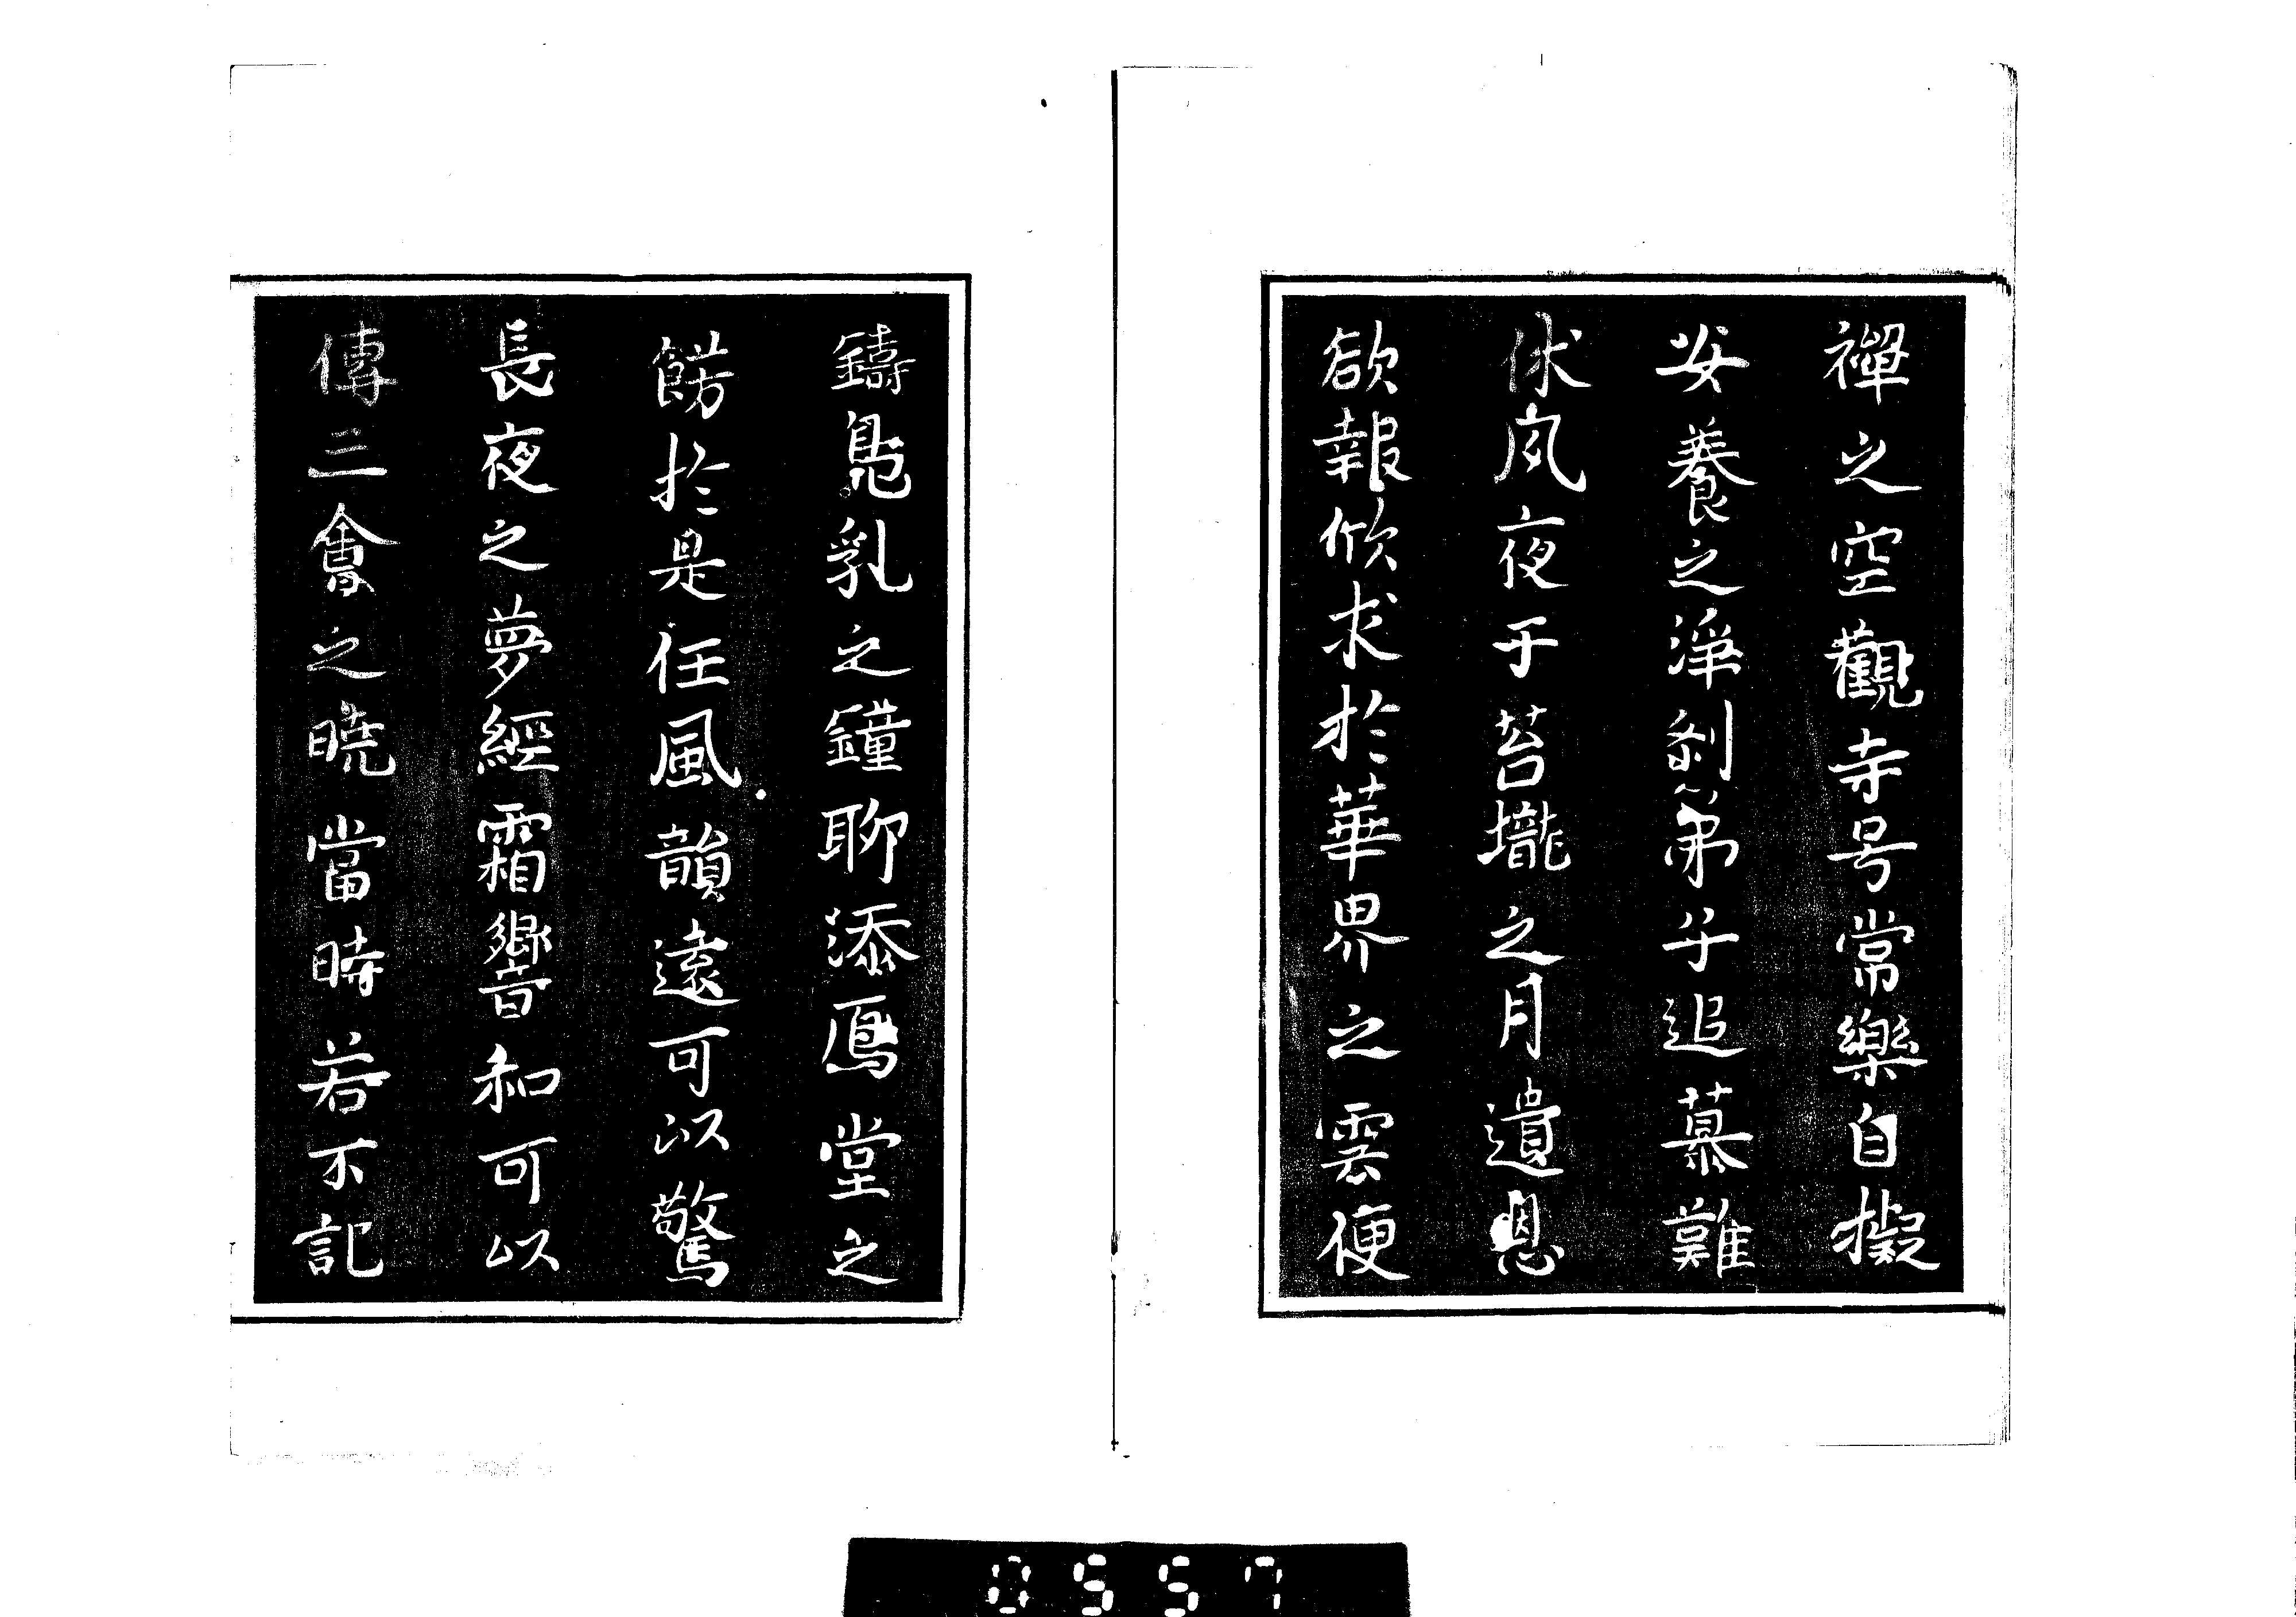 禅之空觀寺号常樂自擬
安養之淨刹弟子追慕難
休夙夜于苔壠之月遺恩
欲報欣求於華界之雲便
鑄鳧乳之鐘聊添鴈堂之
餝於是任風韻遠可以驚
長夜之夢經霜響和可以
傳三會之曉當時若不記
0557